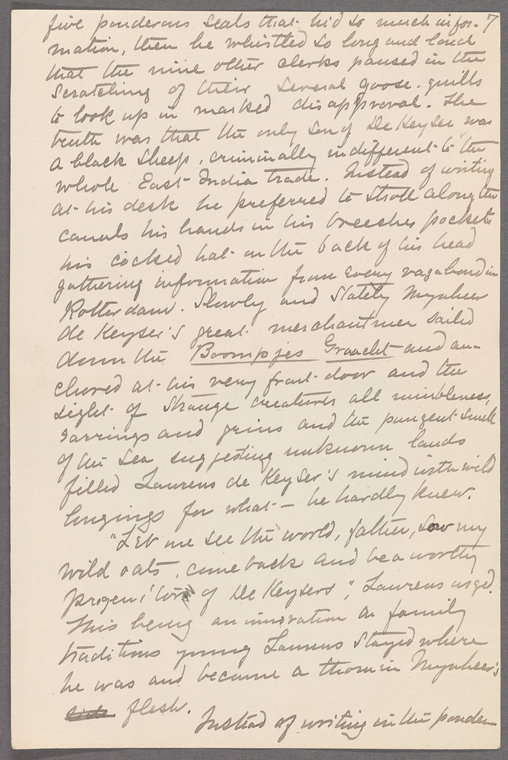 five ponderous seals that hid so much infor- 7
mation, then he whistled so long and loud
that the nine other clerks paused in the
scratching of their several goose-quills
to look up in marked disapproval. The
truth was that the only son of De Keyser was
a black sheep, criminally indifferent to the
whole East India trade. Instead of writing
at his desk he preferred to stroll along the
canals his hands in his breeches pockets
his cocked hat on the back of his head
gathering information from every vagabond in
Rotterdam. Slowly and stately Mynheer
de Keyser's great merchantmen sailed
down the Boompjes Graacht and an-
chored at his very front door and the
sight of strange creatures all nimbleness,
earrings and grins and the pungent smell
of the sea suggesting unknown lands
filled Laurens de Keyser's mind with wild
longings for what — he hardly knew.
"Let me see the world, father, sow my
wild oats, come back and be a worthy
progenitor of De Keysers," Laurens urged.
This being an innovation in family
traditions young Laurens stayed where
he was and became a thorn in Mynheer's
flesh.
Instead of writing in the ponder-